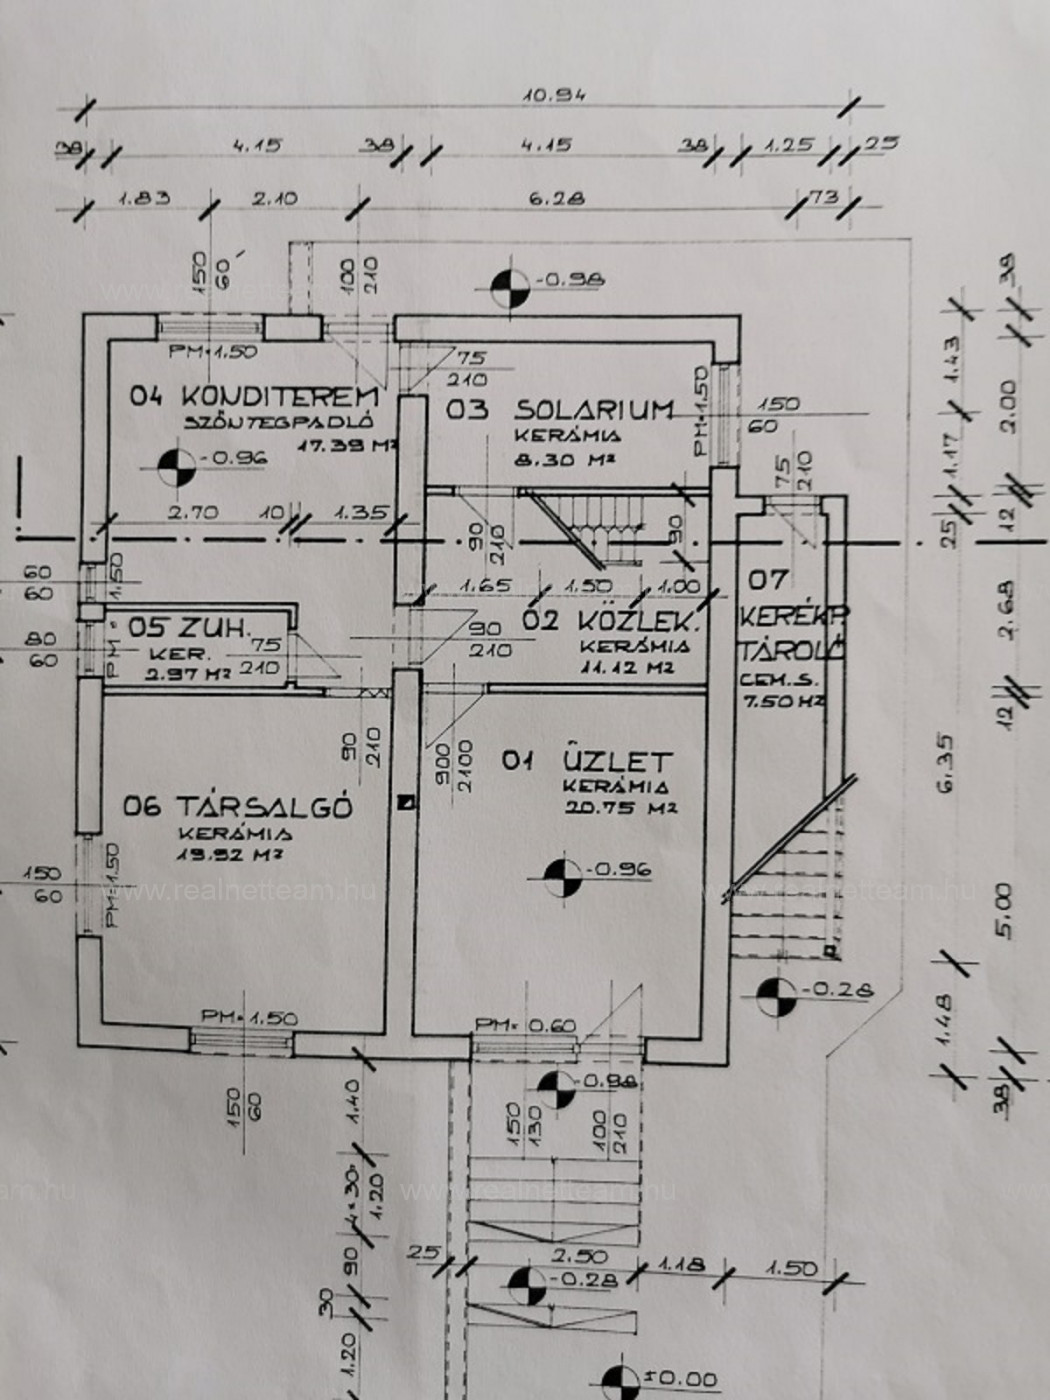 10.94
38 4.15 38 4.15 38 1.25 25
1.83 2.10 6.28 73
150
60
100
210
-0.98
PM=1.50
75
210
04 KONDITEREM
SZŐNYEGPADLÓ
17.39 M²
-0.96
03 SOLARIUM
KERÁMIA
8.30 M²
PM=1.50
150
60
75
210
2.70 10 1.35
90
210
90
1.65 1.50 1.00
60
60
1.50
80
60
PM=
05 ZUH.
KER.
2.97 M²
75
210
90
210
02 KÖZLEK.
KERÁMIA
11.12 M²
07
KERÉKP.
TÁROLÓ
CEM.S.
7.50 M²
90
210
900
2100
01 ÜZLET
KERÁMIA
20.75 M²
-0.96
06 TÁRSALGÓ
KERÁMIA
19.92 M²
150
60
PM=1.50
www.realnetteam.hu
www.realnetteam.hu
PM=1.50
PM=0.60
-0.28
150
60
-0.98
150
130
100
210
1.40
4×30=
1.20
90
30
1.20
www.realnetteam.hu
25 2.50 1.18 1.50
-0.28
±0.00
1.43
1.17
25
6.35
1.48
38
2.00
12
2.68
12
5.00
38